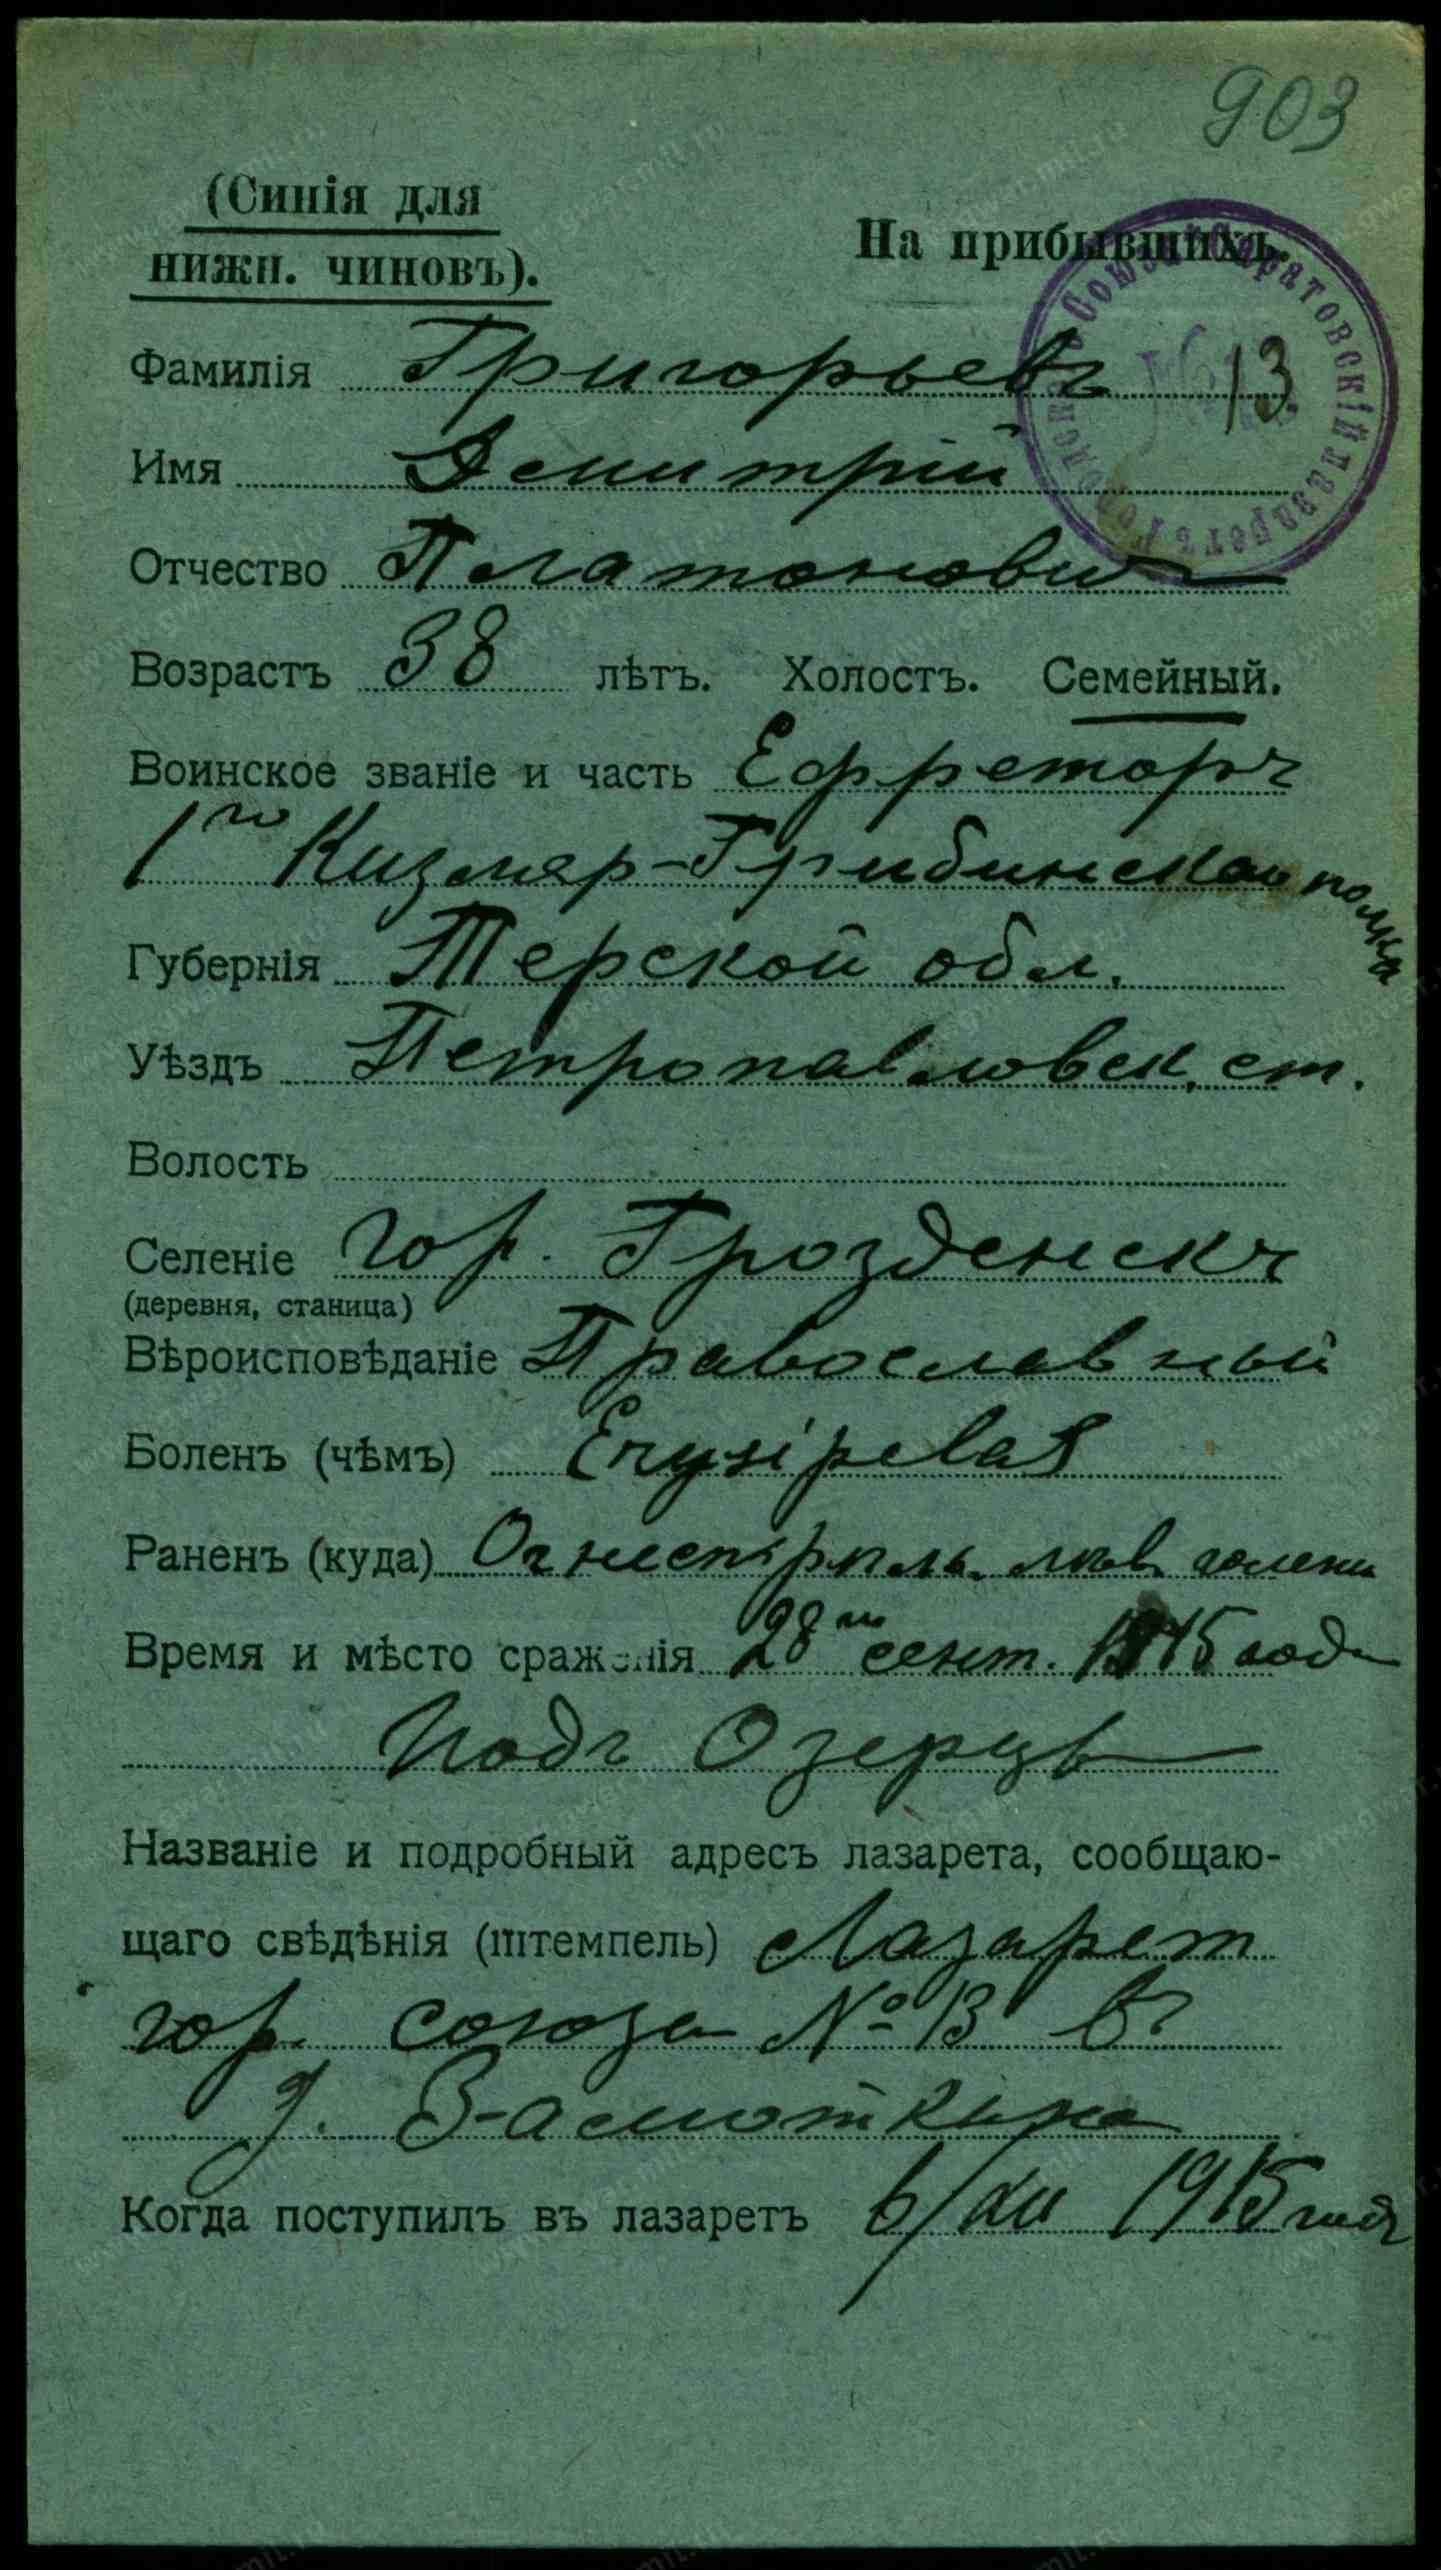 903
(Синія для
нижн. чиновъ).
На прибывшихъ.
Саратовскій лазаретъ Городск. Союза
№ 13
Фамилія Григорьевъ
Имя Дмитрій
Отчество Платонович
Возрастъ 38 лѣтъ. Холостъ. Семейный.
Воинское званіе и часть Ефреторъ
1го Кизляр-Грибинскаго полка
Губернія Терской обл.
Уѣздъ Петропавловск. ст.
Волость
Селеніе гор. Грозденскъ
(деревня, станица)
Вѣроисповѣданіе Православный
Боленъ (чѣмъ) Erysipelas
Раненъ (куда) Огнестрѣльн. лѣв. голени
Время и мѣсто сраженія 28го сент. 1915 года
Подъ Озерцы
Названіе и подробный адресъ лазарета, сообщаю-
щаго свѣдѣнія (штемпель) Лазарет
гор. союза № 13 въ
г. Замоткина
Когда поступилъ въ лазаретъ 6/XII 1915 года